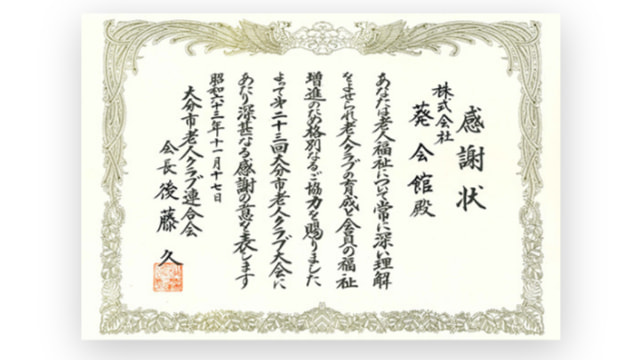 感謝状
株式会社
葵会館殿
あなたは老人福祉について常に深い理解
をよせられ老人クラブの育成と会員の福祉
増進のため格別なるご協力を賜りました
よって第二十三回大分市老人クラブ大会に
あたり深甚なる感謝の意を表します
昭和六十三年十一月十七日
大分市老人クラブ連合会
会長後藤久